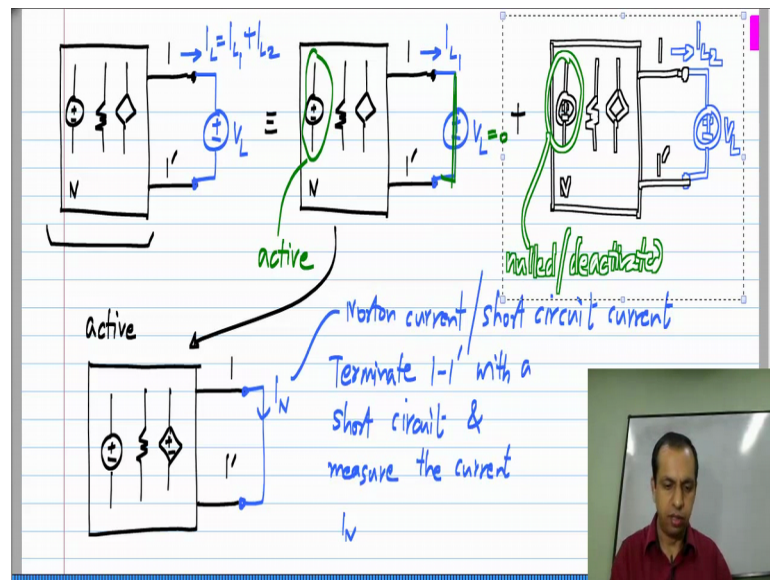 1 → I_L = I_L1 + I_L2
V_L
1'
N
≡
1 → I_L1
V_L = 0
1'
N
active
+
1 → I_L2
V_L
1'
N
nulled/deactivated
active
1
I_N
1'
Norton current / short circuit current
Terminate 1-1' with a
short circuit &
measure the current
I_N